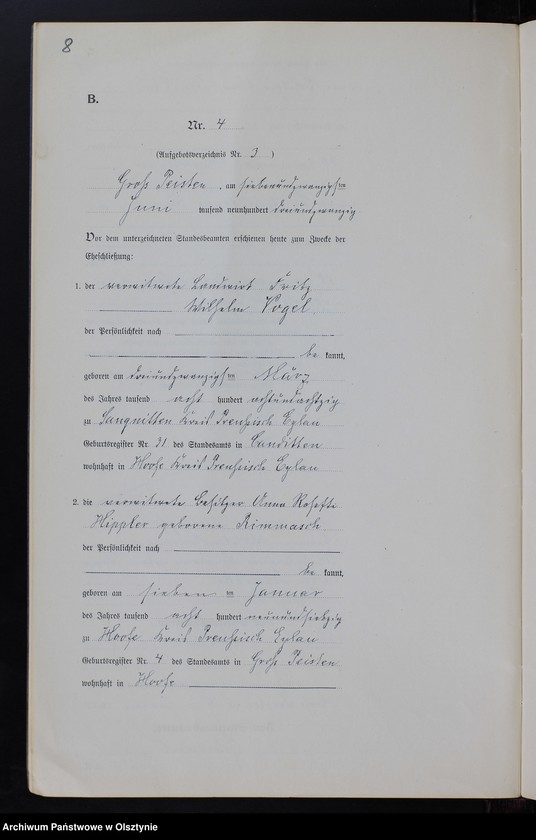 8
B.
Nr. 4
(Aufgebotsverzeichnis Nr. 3 )
Groß Peisten, am siebenundzwanzigsten
Juni tausend neunhundert dreiundzwanzig
Vor dem unterzeichneten Standesbeamten erschienen heute zum Zwecke der
Eheschließung:
1. der verwitwete Landwirt Fritz
Wilhelm Vogel.
der Persönlichkeit nach
be kannt,
geboren am dreiundzwanzigsten März
des Jahres tausend acht hundert achtundachtzig
zu Sangnitten Kreis Preußisch Eylau
Geburtsregister Nr. 31 des Standesamts in Canditten
wohnhaft in Hoofe Kreis Preußisch Eylau
2. die verwitwete Besitzer Anna
Hippler geborene Rimmasch
der Persönlichkeit nach
be kannt,
geboren am sieben ten Januar
des Jahres tausend acht hundert neunundsiebzig
zu Hoofe Kreis Preußisch Eylau
Geburtsregister Nr. 4 des Standesamts in Groß Peisten
wohnhaft in Hoofe
Archiwum Państwowe w Olsztynie